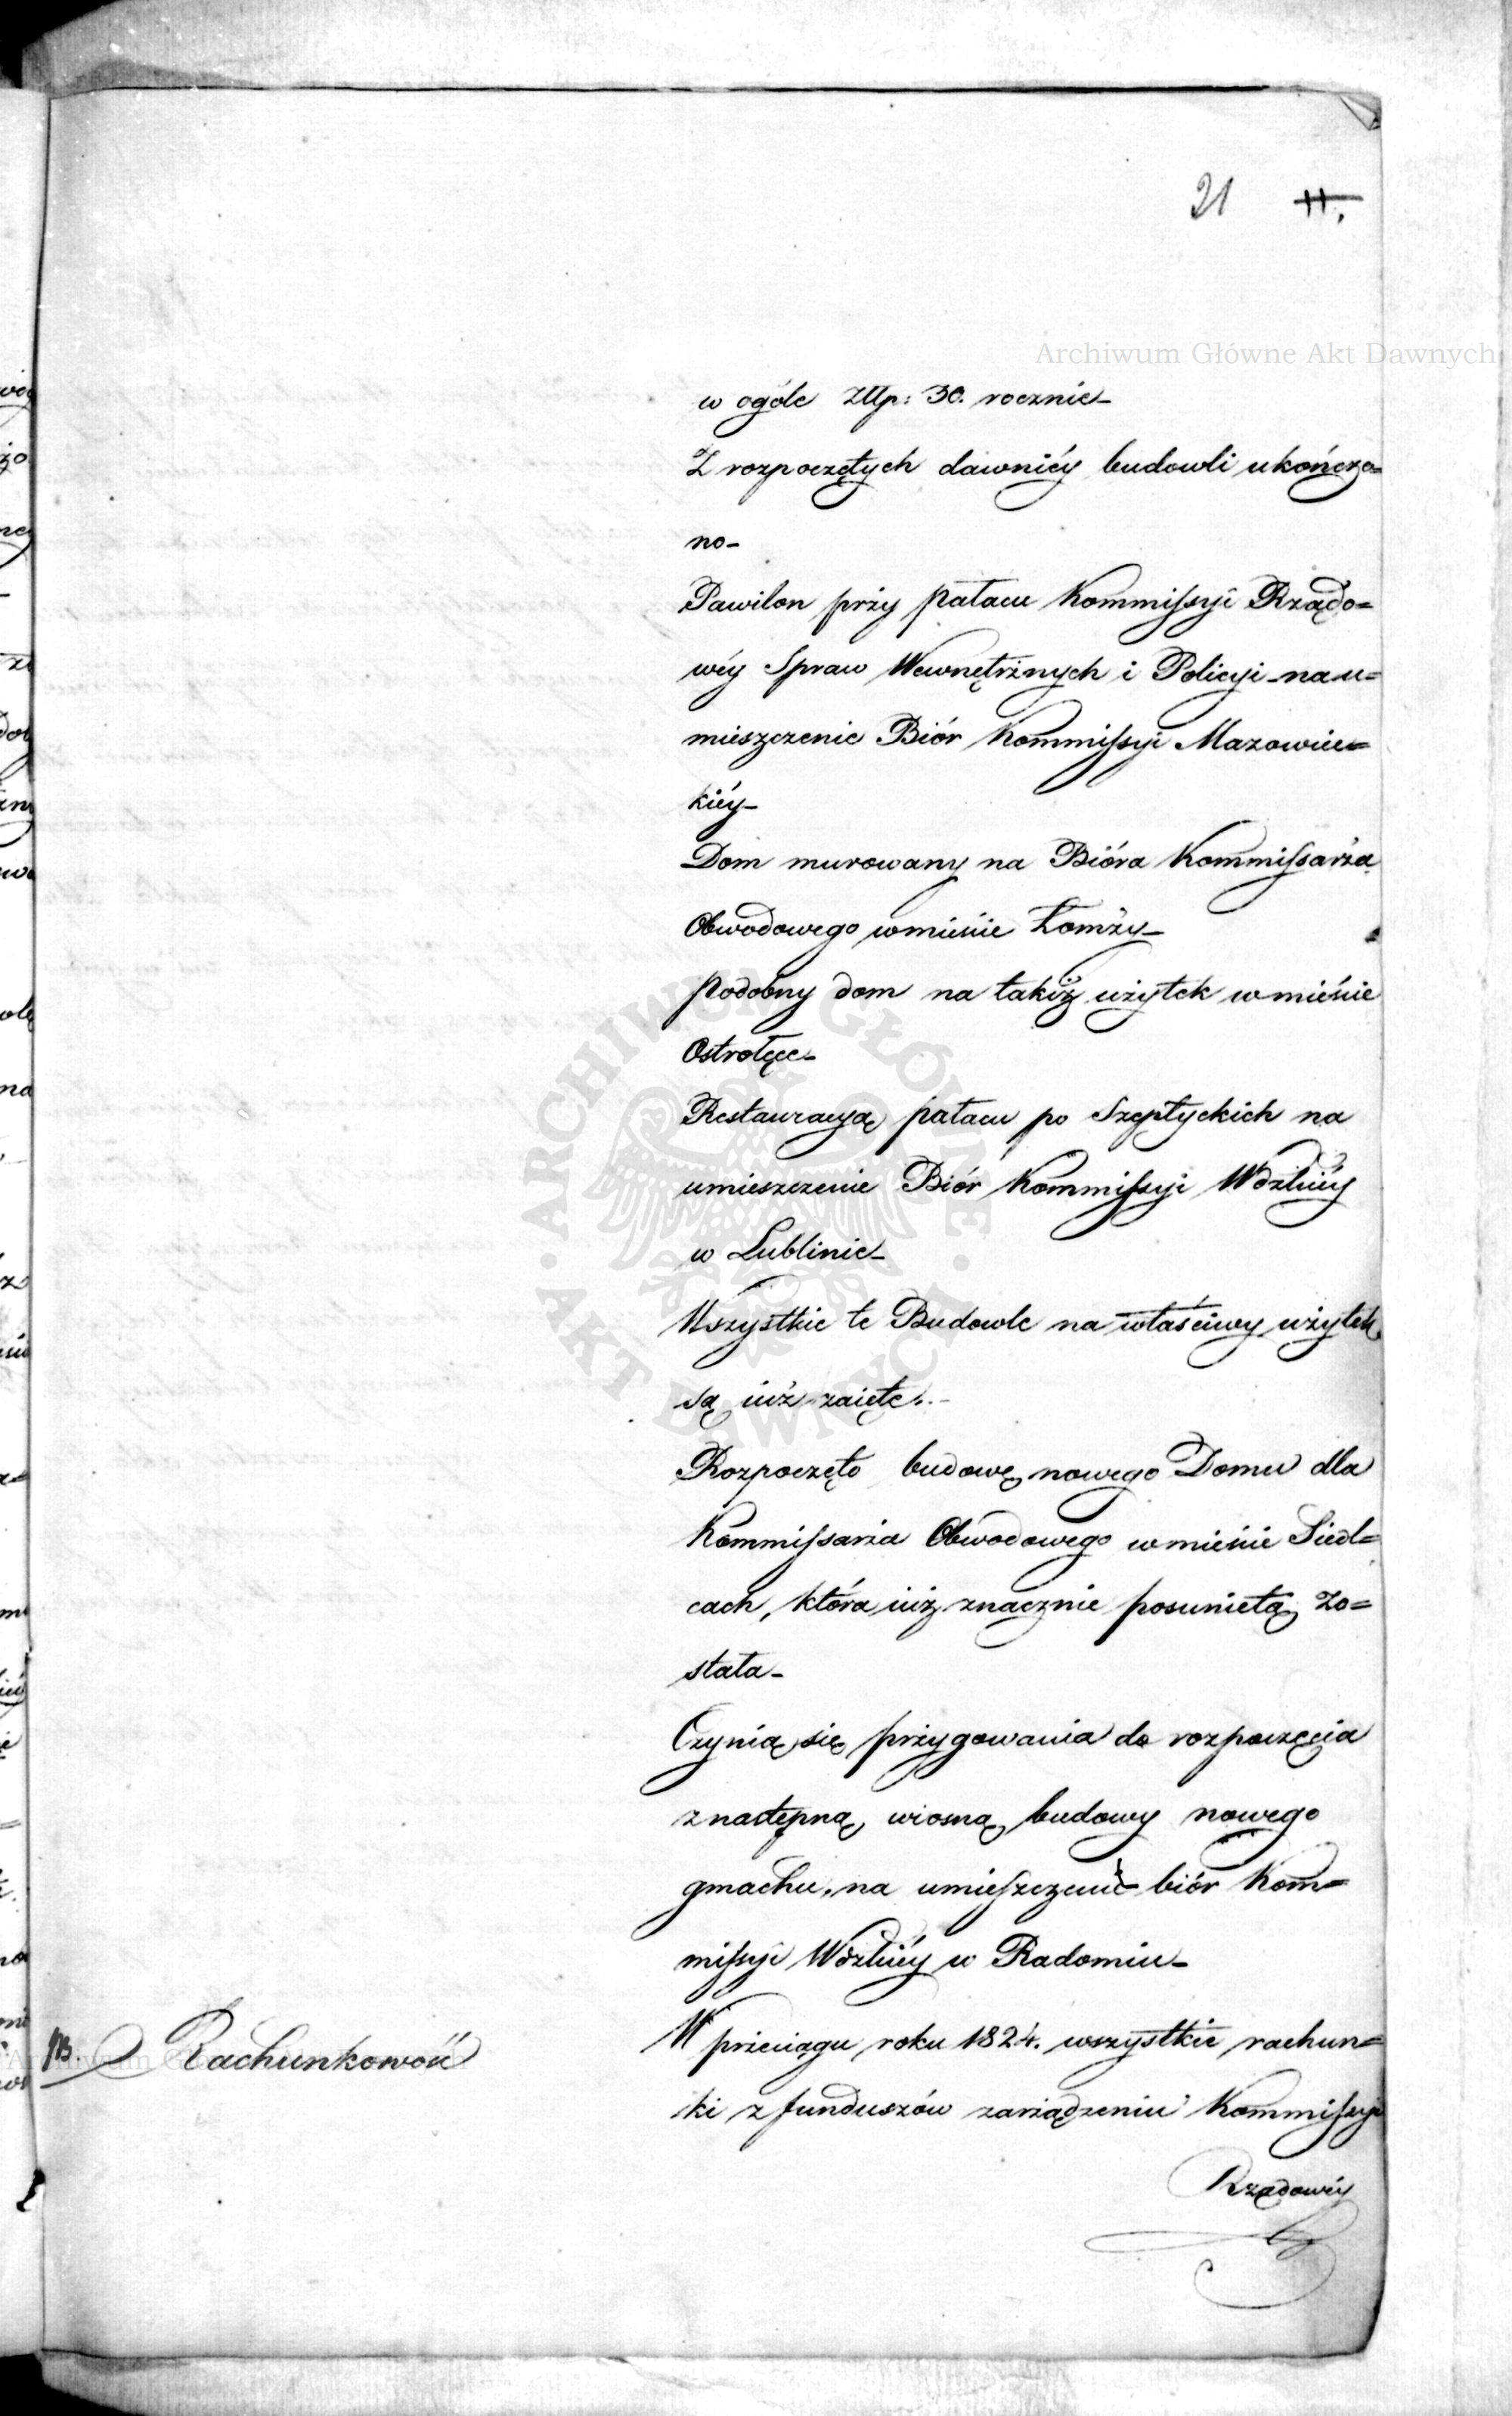 21 11.
Archiwum Główne Akt Dawnych
w ogóle złłp: 30. rocznie_
Z rozpoczętych dawniéy budowli ukończo=
no_
Pawilon przy pałacu Kommissyi Rządo=
wéy Spraw Wewnętrznych i Policyi_na u=
mieszczenie Biór Kommissyi Mazowiec=
kiéy_
Dom murowany na Bióra Kommissarza
Obwodowego w mieście Łomży_
podobny dom na takiż użytek w mieście
Ostrołęce_
Restauracyą pałacu po Szeptyckich na
umieszczenie Biór Kommissyi Wdztwiéy
w Lublinie_
Wszystkie te Budowle na właściwy użytek
są iuż zaięte._
Rozpoczęto budowę nowego Domu dla
Kommissarza Obwodowego w mieście Siedl=
cach, która iuż znacznie posuniętą zo=
stała_
Czynią się przygowania do rozpoczęcia
z następną wiosną budowy nowego
gmachu, na umieszczenie biór Kom=
missyi Wdztwiéy w Radomiu_
W przeciągu roku 1824. wszystkie rachun=
ki z funduszów zarządzeniu Kommissyi
Rządowéy
Rachunkowość
ARCHIWUM GŁÓWNE · AKT DAWNYCH ·